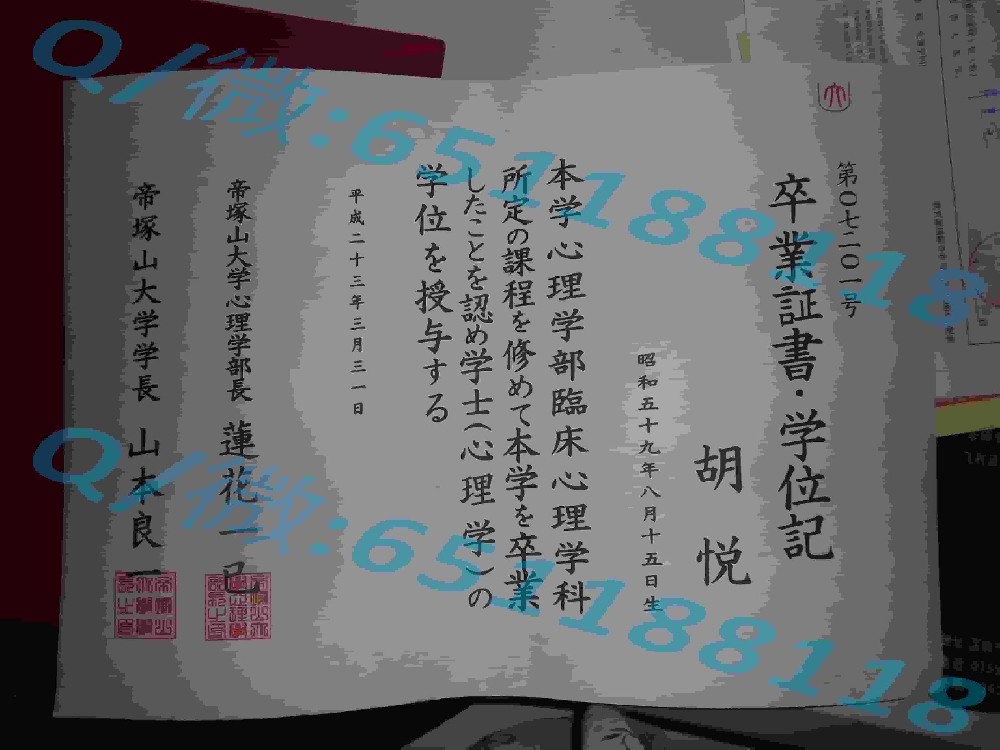 第〇七二〇一号
卒業証書・学位記
胡悦
昭和五十九年八月十五日生
本学心理学部臨床心理学科
所定の課程を修めて本学を卒業
したことを認め学士（心理学）の
学位を授与する
平成二十三年三月三一日
帝塚山大学心理学部長 蓮花一己
帝塚山大学学長 山本良一
Q/微:651188118
Q/微:651188118